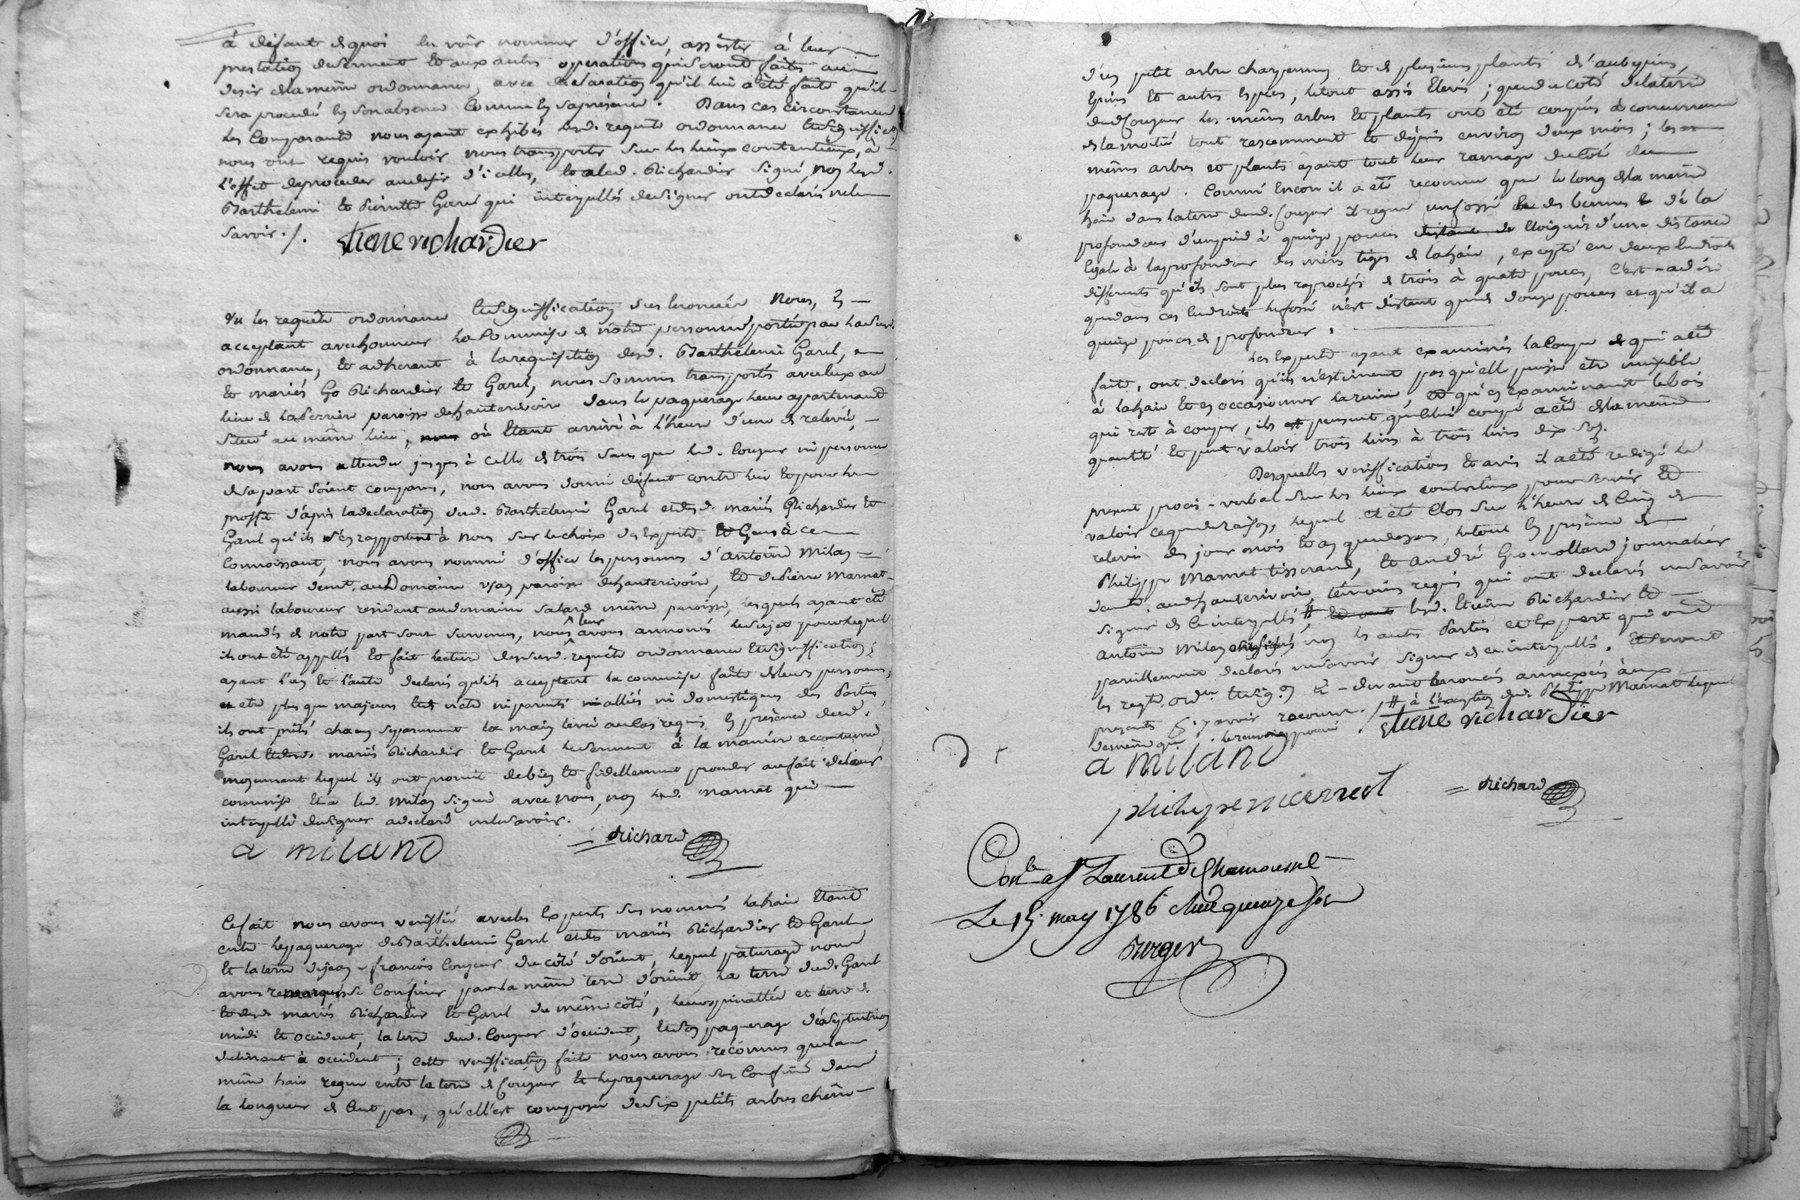 à défaut de quoi les voir nommer d'office, assister à leur
prestation de serment et aux autres operations qui seront faites au
desir de la meme ordonnance, avec declaration qu'il lui a été faite qu'il
sera procedé en son absence comme en sa présence. Dans ces circonstances
les comparants nous ayant exhibés lesd. requete ordonnance et signiffication
nous ont requis vouloir nous transporter sur les lieux contentieux, à
l'effet de proceder au desir d'icelles, et a led. Richardier signé, non lesd.
Barthelemi et Pierrette Garel qui interpellés de signer ont declaré ne le
savoir ./.
Etiene richardier
Vu les requete ordonnance et signiffication sus enoncées nous,
acceptant avec honneur la commise de notre personne portée par lad.
ordonnance, et adherant à la requisition dud. Barthelemi Garel,
et mariés Richardier et Garel, nous sommes transportés avec eux au
lieu de paroisse de hauterivoire dans le paquerage leur appartenant
situé au même lieu, où etant arrivé à l'heure d'une de relevée,
nous avons attendu jusques à celle de trois sans que led. Couzur ni personne
de sa part soient comparus, nous avons donné défaut contre lui et pour le
proffit d'après la declaration dud. Barthelemi Garel et desd. mariés Richardier et
Garel qu'ils s'en rapportent à nous sur le choix des experts et gens à ce
connoissant, nous avons nommé d'office les personnes d'antoine Milan
laboureur demt. au Domaine paroisse de hauterivoire, et de Pierre Marnat
aussi laboureur residant au domaine Salard même paroisse, lesquels ayant été
mandés de notre part sont survenus, nous leur avons annoncé le sujet pour lequel
ils ont été appellés et fait lecture desdites requete ordonnance et signiffication;
ayant l'un et l'autre declaré qu'ils acceptent la commise faite de leurs personnes,
et etre plus que majeurs et n'etre ni parents ni alliés ni domestiques des Parties
ils ont prêté chacun separement la main levée au cas requis en présence dud.
Garel et desd. mariés Richardier et Garel le serment à la maniere accoutumée,
moyennant lequel ils ont promis de bien et fidellement proceder au fait de leur
commise et a led. Milan signé avec nous, non led. Marnat qui
interpellé de signer a declaré ne le savoir.
a miland
Richard
Ce fait nous avons veriffié avec les Experts sus nommés la haie etant
entre le paquerage de Barthelemi Garel et des mariés Richardier et Garel
et la terre de jean-françois Couzur du côté d'orient, lequel paturage nous
avons remarqué se confiner par la même terre d'orient, la terre dud. Garel
et desd. mariés Richardier et Garel du même côté, et terre de
midi et occident, la terre dud. Couzur d'occident, et son paquerage de septentrion
declinant à occident; cette veriffication faite nous avons reconnu que la
même haie regne entre la terre de Couzur et le paquerage sus confiné dans
la longueur de cent pas, qu'elle est composée de dix petits arbres chêne
d'un petit arbre charpenne et de plusieurs plants d'aubepins,
epines et autres especes, le tout assés elevés; que du coté de la terre
dud Couzur les mêmes arbres et plants ont été coupés à concurrence
de la moitié tout rescemment et depuis environ deux mois; les
mêmes arbres et plants ayant tout leur ramage du coté du
paquerage. Comme encore il a été reconnu que le long de la même
haie dans la terre dud. Couzur il regne un fossé de la
profondeur d'un pied à quinze pouces eloigné d'une distance
egale à la profondeur des mêmes tiges de la haie, excepté en deux endroits
differents qu'ils sont plus raprochés de trois à quatre pouces, c'est-a-dire
que dans ces endroits le fossé n'est distant que de douze pouces et qu'il a
quinze pouces de profondeur.
Les Experts ayant examinés la coupe de qui a été
faite, ont declaré qu'ils n'estiment pas qu'elle puisse etre nuisible
à la haie et en occasionner la ruine, et qu'en examinant le bois
qui reste à couper, ils pensent que celui coupé a été de la même
quantité et peut valoir trois livres à trois livres dix sols.
Desquelles veriffications et avis il a été redigé le
present procès-verbal sur les lieux contentieux pour servir et
valoir ce que de raison, lequel a été clos sur l'heure de cinq de
relevée des jour mois et an que dessus, le tout en présence de
Philippe Marnat tisserand, et andré Gromollard journalier
demt. aud hauterivoire, temoins requis qui ont declaré ne savoir
signer de ce interpellés # lesd. Etiene Richardier et
antoine Milan non les autres Parties et Expert qui ont
pareillement declaré ne savoir signer de ce interpellés.
les reqte. ord.ce et sig.on ci-devant enoncés annexés aux
presents pour y avoir recours. # à l'exception dud. Philippe Marnat lequel
Etiene richardier
a miland
philipe marnat
Richard
Con.le a St Laurent de Chamousset
Le 15. may 1786 Reçu quinze sols
Berger